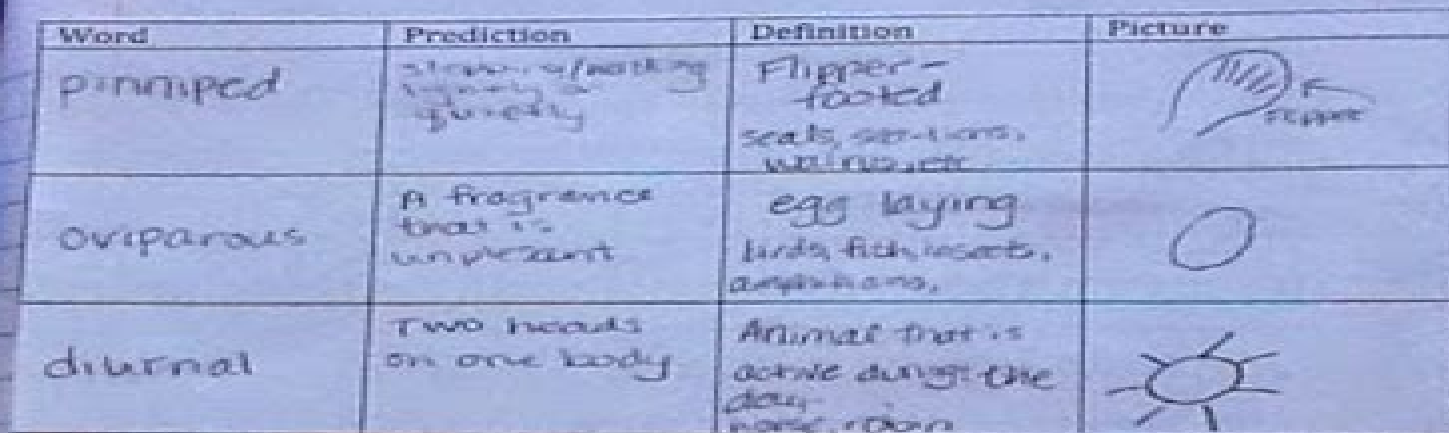 Word Prediction Definition Picture
pinniped
quietly
Flipper-
footed
seals, sea-lions,
walrus, etc
FLIPPER
oviparous
A fragrance
that is
unplesant
egg laying
birds, fish, insects,
amphibians,
diurnal
Two heads
on one body
Animal that is
active durigs the
day
horse, robin